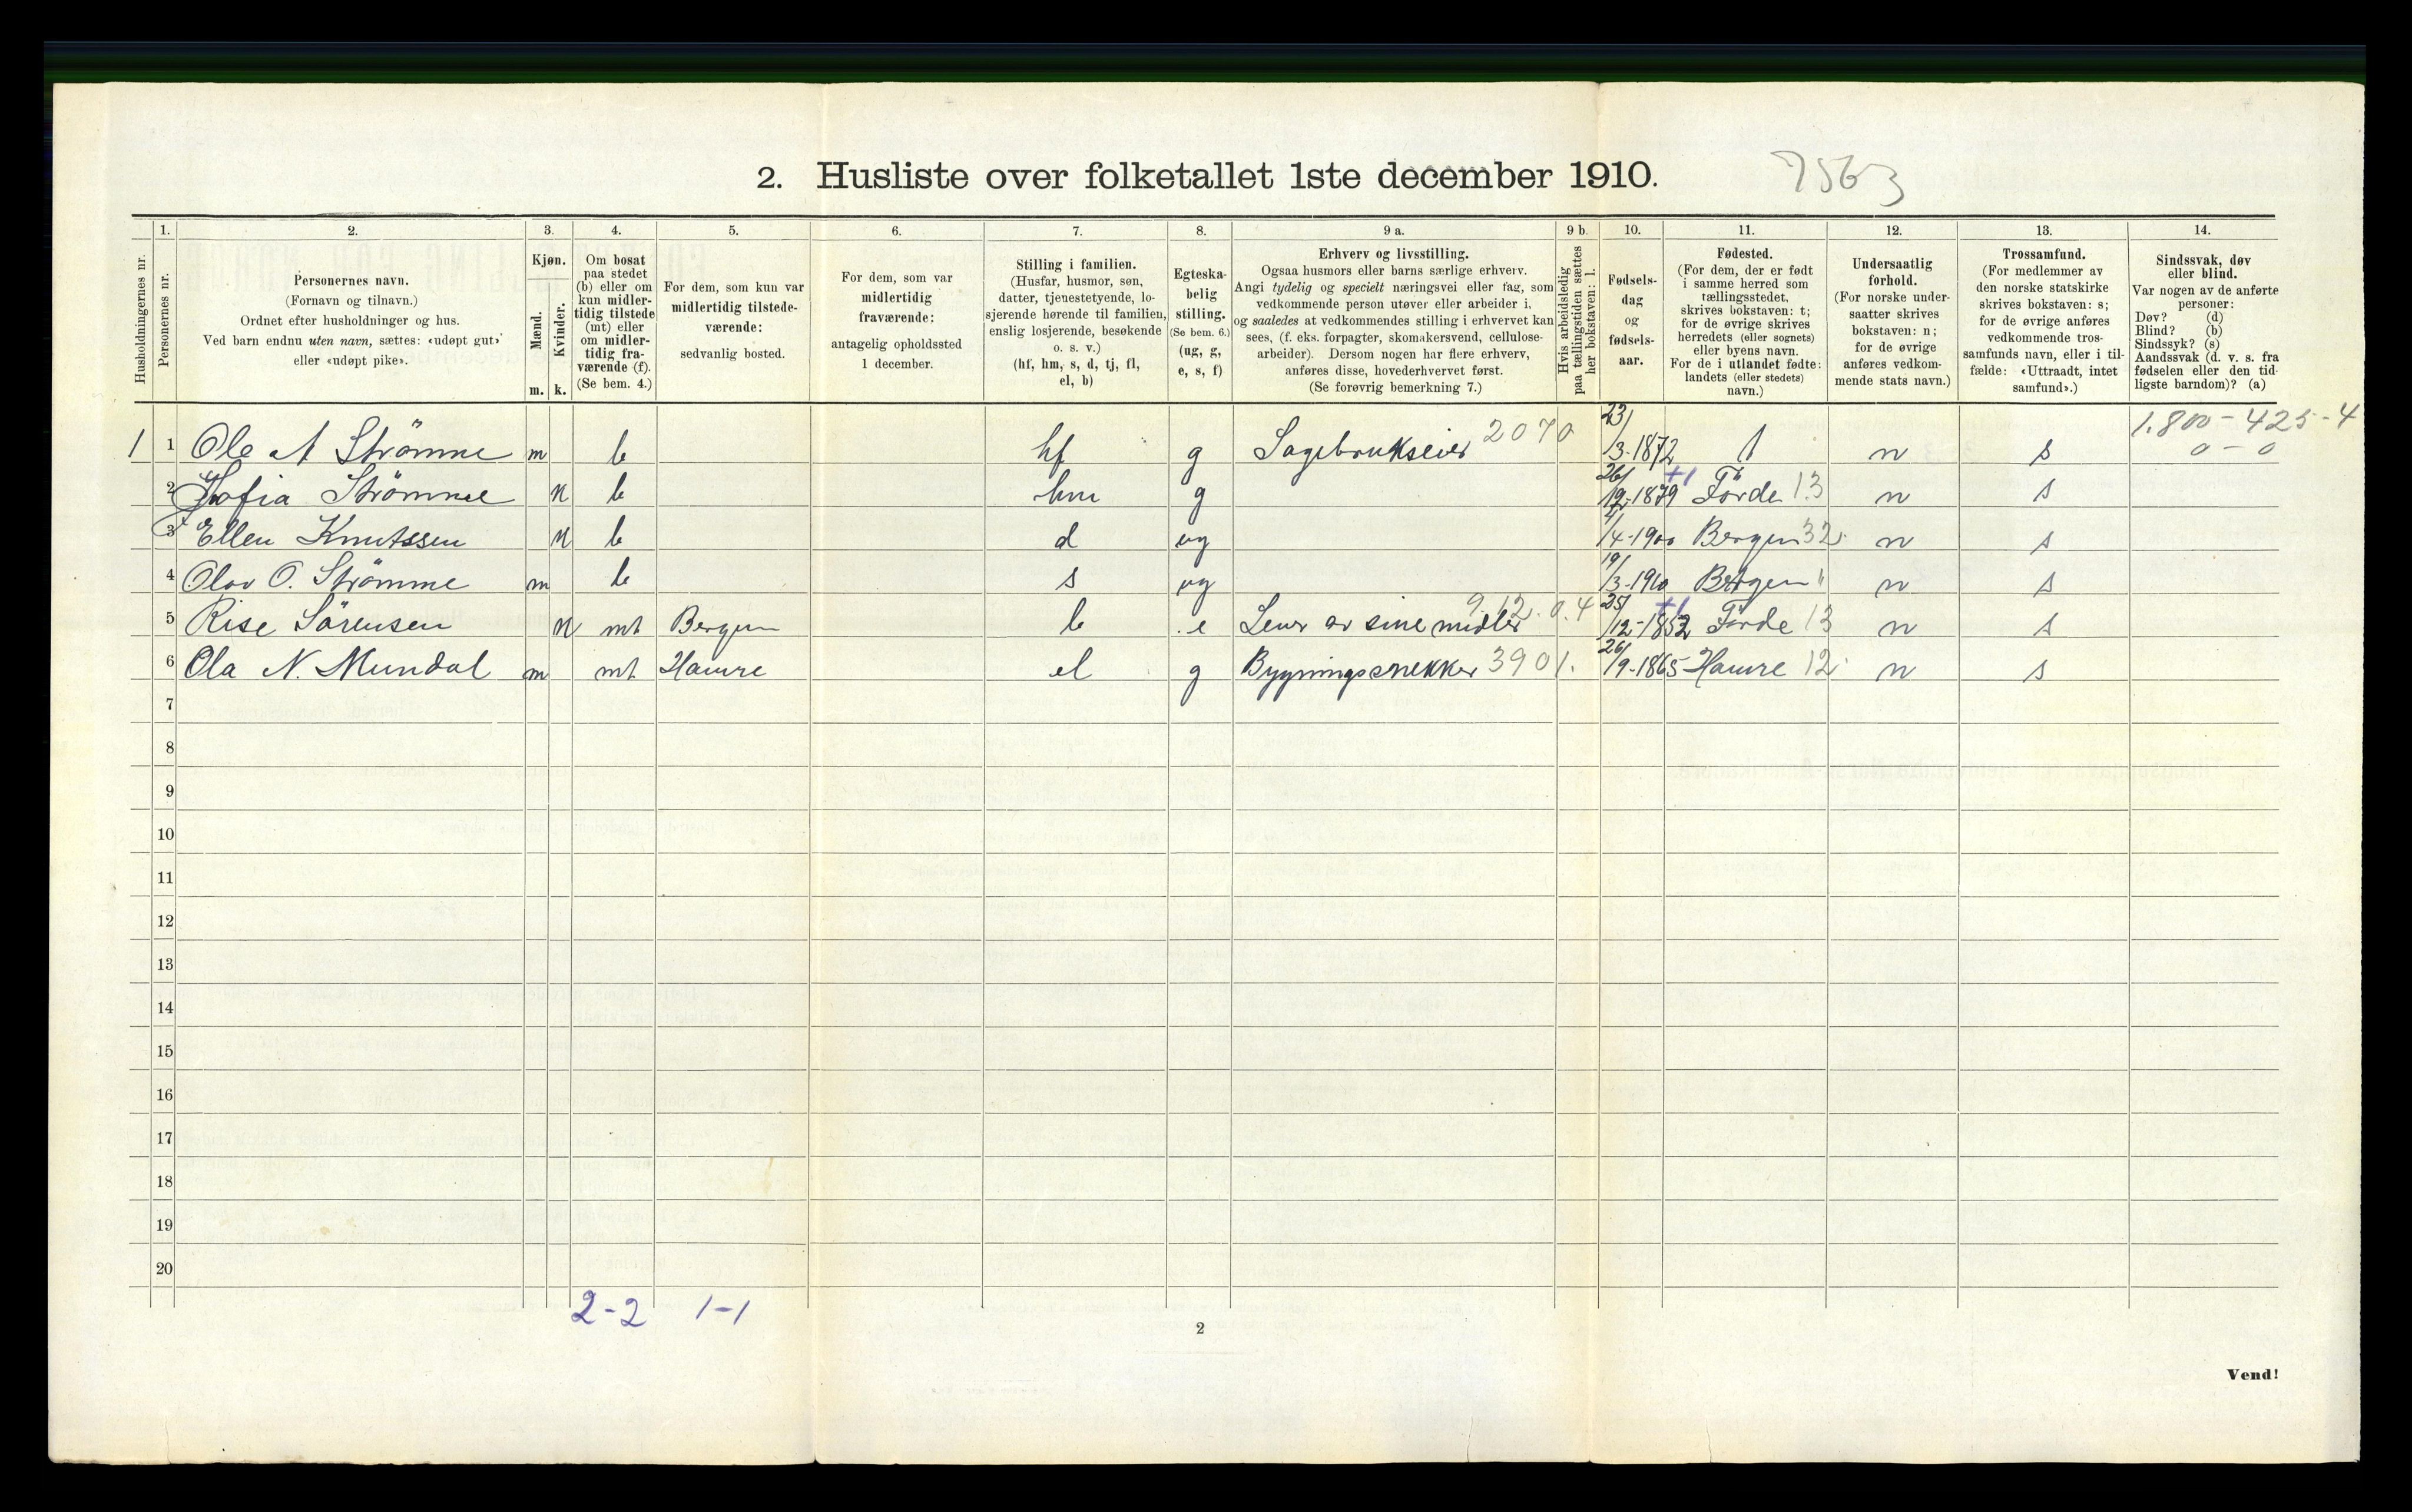 2. Husliste over folketallet 1ste december 1910.
7563
Husholdningernes nr.
1.
Personernes nr.
2.
Personernes navn.
(Fornavn og tilnavn.)
Ordnet efter husholdninger og hus.
Ved barn endnu uten navn, sættes: «udøpt gut»
eller «udøpt pike».
3.
Kjøn.
Mænd.
Kvinder.
m. k.
4.
Om bosat
paa stedet
(b) eller om
kun midler-
tidig tilstede
(mt) eller
om midler-
tidig fra-
værende (f).
(Se bem. 4.)
5.
For dem, som kun var
midlertidig tilstede-
værende:
sedvanlig bosted.
6.
For dem, som var
midlertidig
fraværende:
antagelig opholdssted
1 december.
7.
Stilling i familien.
(Husfar, husmor, søn,
datter, tjenestetyende, lo-
sjerende hørende til familien,
enslig losjerende, besøkende
o. s. v.)
(hf, hm, s, d, tj, fl,
el, b)
8.
Egteska-
belig
stilling.
(Se bem. 6.)
(ug, g,
e, s, f)
9 a.
Erhverv og livsstilling.
Ogsaa husmors eller barns særlige erhverv.
Angi tydelig og specielt næringsvei eller fag, som
vedkommende person utøver eller arbeider i,
og saaledes at vedkommendes stilling i erhvervet kan
sees, (f. eks. forpagter, skomakersvend, cellulose-
arbeider). Dersom nogen har flere erhverv,
anføres disse, hovederhvervet først.
(Se forøvrig bemerkning 7.)
9 b.
Hvis arbeidsledig
paa tællingstiden sættes
her bokstaven: l.
10.
Fødsels-
dag
og
fødsels-
aar.
11.
Fødested.
(For dem, der er født
i samme herred som
tællingsstedet,
skrives bokstaven: t;
for de øvrige skrives
herredets (eller sognets)
eller byens navn.
For de i utlandet fødte:
landets (eller stedets)
navn.)
12.
Undersaatlig
forhold.
(For norske under-
saatter skrives
bokstaven: n;
for de øvrige
anføres vedkom-
mende stats navn.)
13.
Trossamfund.
(For medlemmer av
den norske statskirke
skrives bokstaven: s;
for de øvrige anføres
vedkommende tros-
samfunds navn, eller i til-
fælde: «Uttraadt, intet
samfund».)
14.
Sindssvak, døv
eller blind.
Var nogen av de anførte
personer:
Døv? (d)
Blind? (b)
Sindssyk? (s)
Aandssvak (d. v. s. fra
fødselen eller den tid-
ligste barndom)? (a)
1 1 Ole A Strömme m b hf g Sagebrukseier 2070 23/3-1872 t n s 1.800-425-4
0-0
2 Sofia Strömme k b hm g 26/12-1879 +1 Förde 13 n s
3 Ellen Knutssen k b d ug 4/4-1900 Bergen 32 n s
4 Olav O. Strömme m b s ug 19/3-1910 Bergen " n s
5 Rise Sörensen k mt Bergen b e Lever av sine midler 912.0.4 25/12-1852 +1 Förde 13 n s
6 Ola N. Mundal m mt Hamre el g Bygningssnekker 3901. 26/9-1865 Hamre 12 n s
7
8
9
10
11
12
13
14
15
16
17
18
19
20
2-2 1-1
2
Vend!